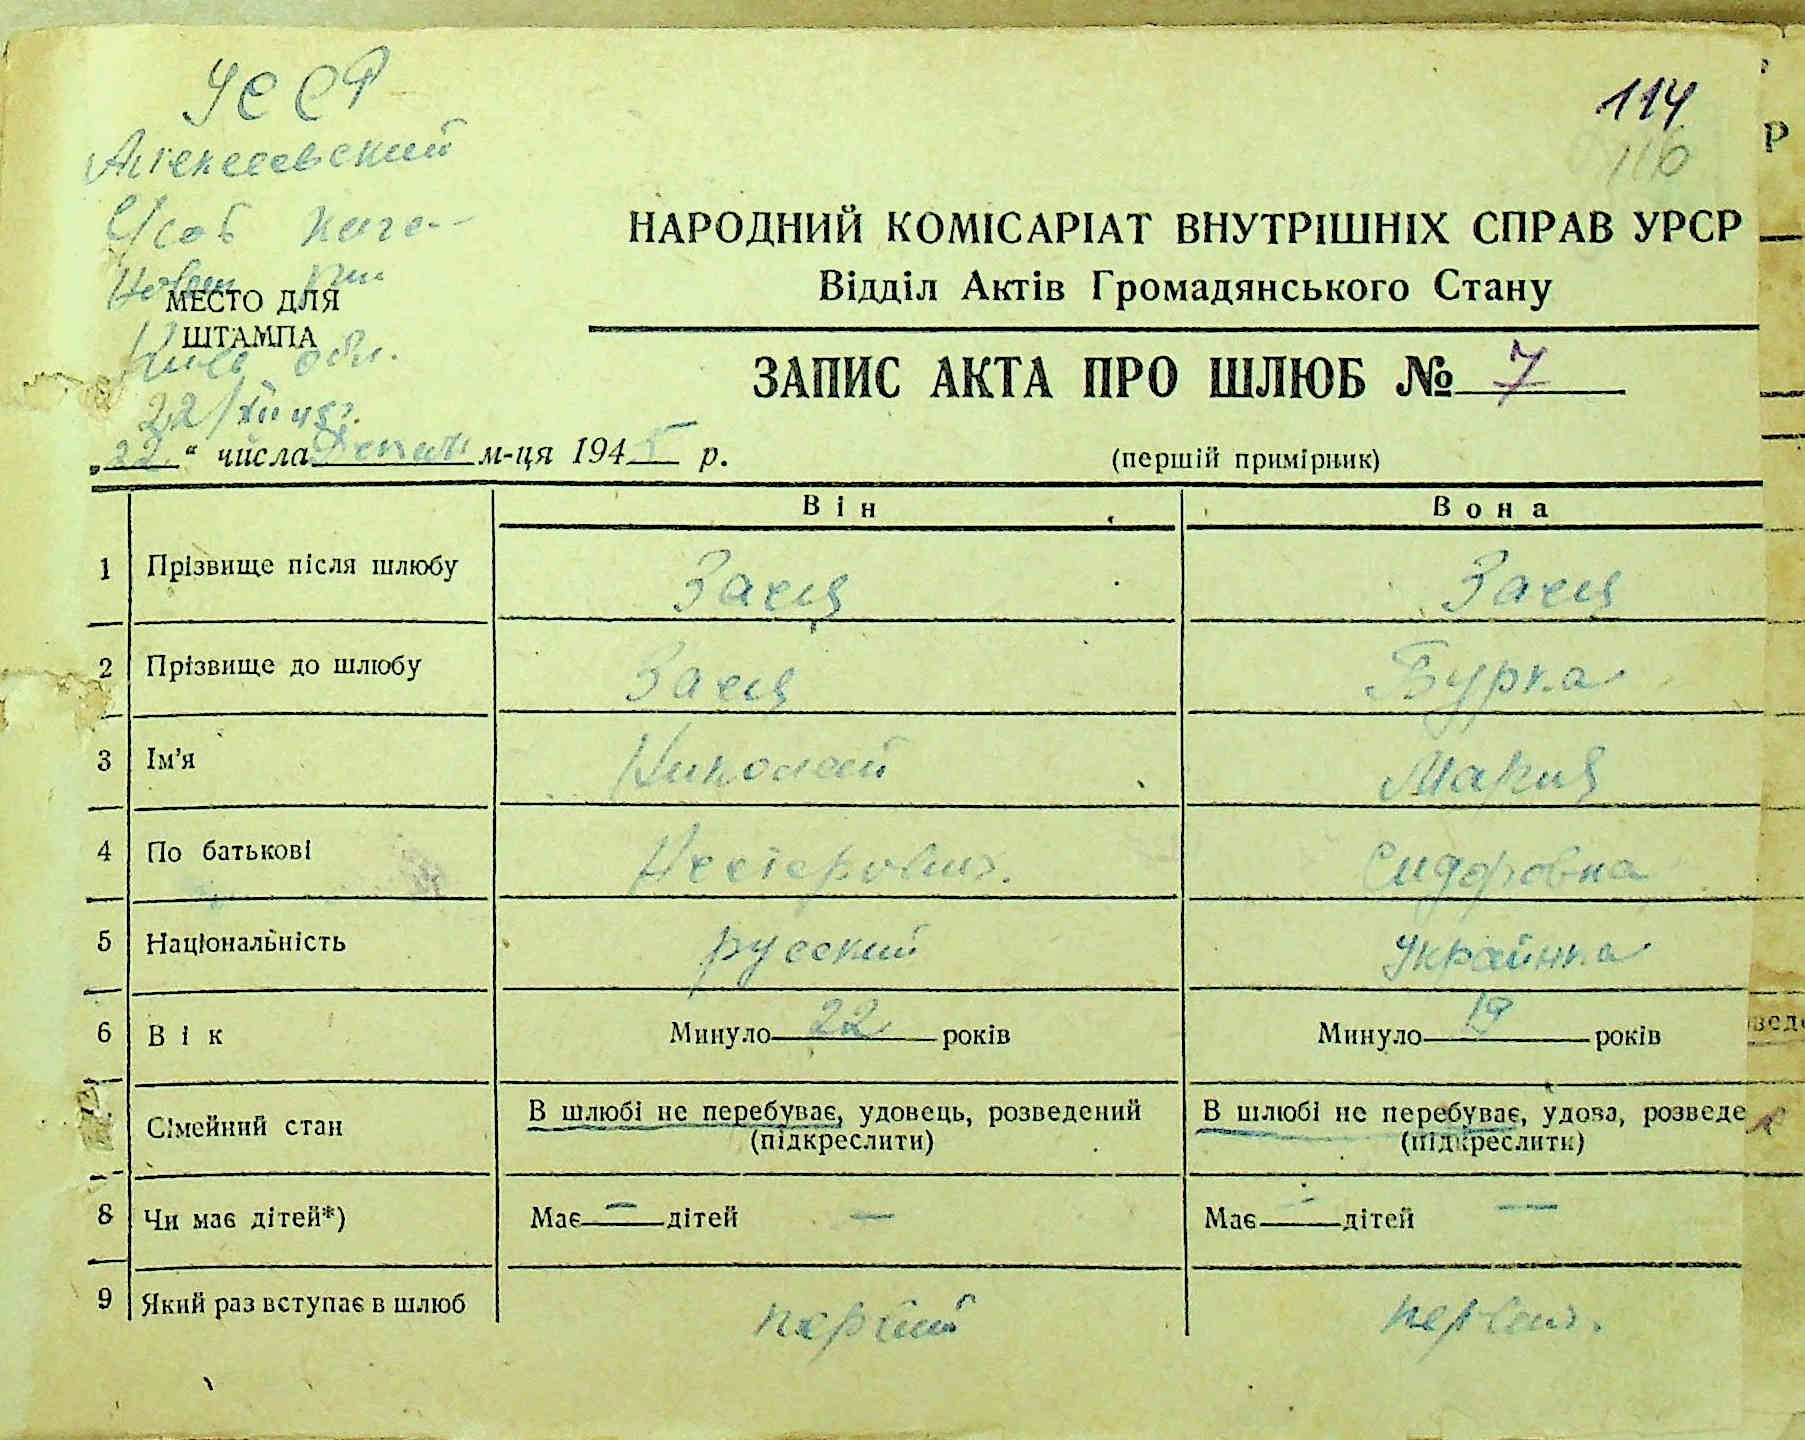 УССР
114
Алексеевский
116
С/сов
НАРОДНИЙ КОМІСАРІАТ ВНУТРІШНІХ СПРАВ УРСР
Відділ Актів Громадянського Стану
МЕСТО ДЛЯ
ШТАМПА
Киев обл.
ЗАПИС АКТА ПРО ШЛЮБ № 7
22/XII 45г.
„22“ числа м-ця 1945 р.
(першій примірник)
Він Вона
1 Прізвище після шлюбу Заец Заец
2 Прізвище до шлюбу Заец Бурка
3 Ім’я Николай Мария
4 По батькові Нестерович. Сидоровна
5 Національність русский Украинка
6 Вік Минуло 22 років Минуло 19 років
Сімейний стан В шлюбі не перебуває, удовець, розведений В шлюбі не перебуває, удова, розведе
(підкреслити) (підкреслити)
8 Чи має дітей*) Має — дітей — Має — дітей —
9 Який раз вступає в шлюб первий